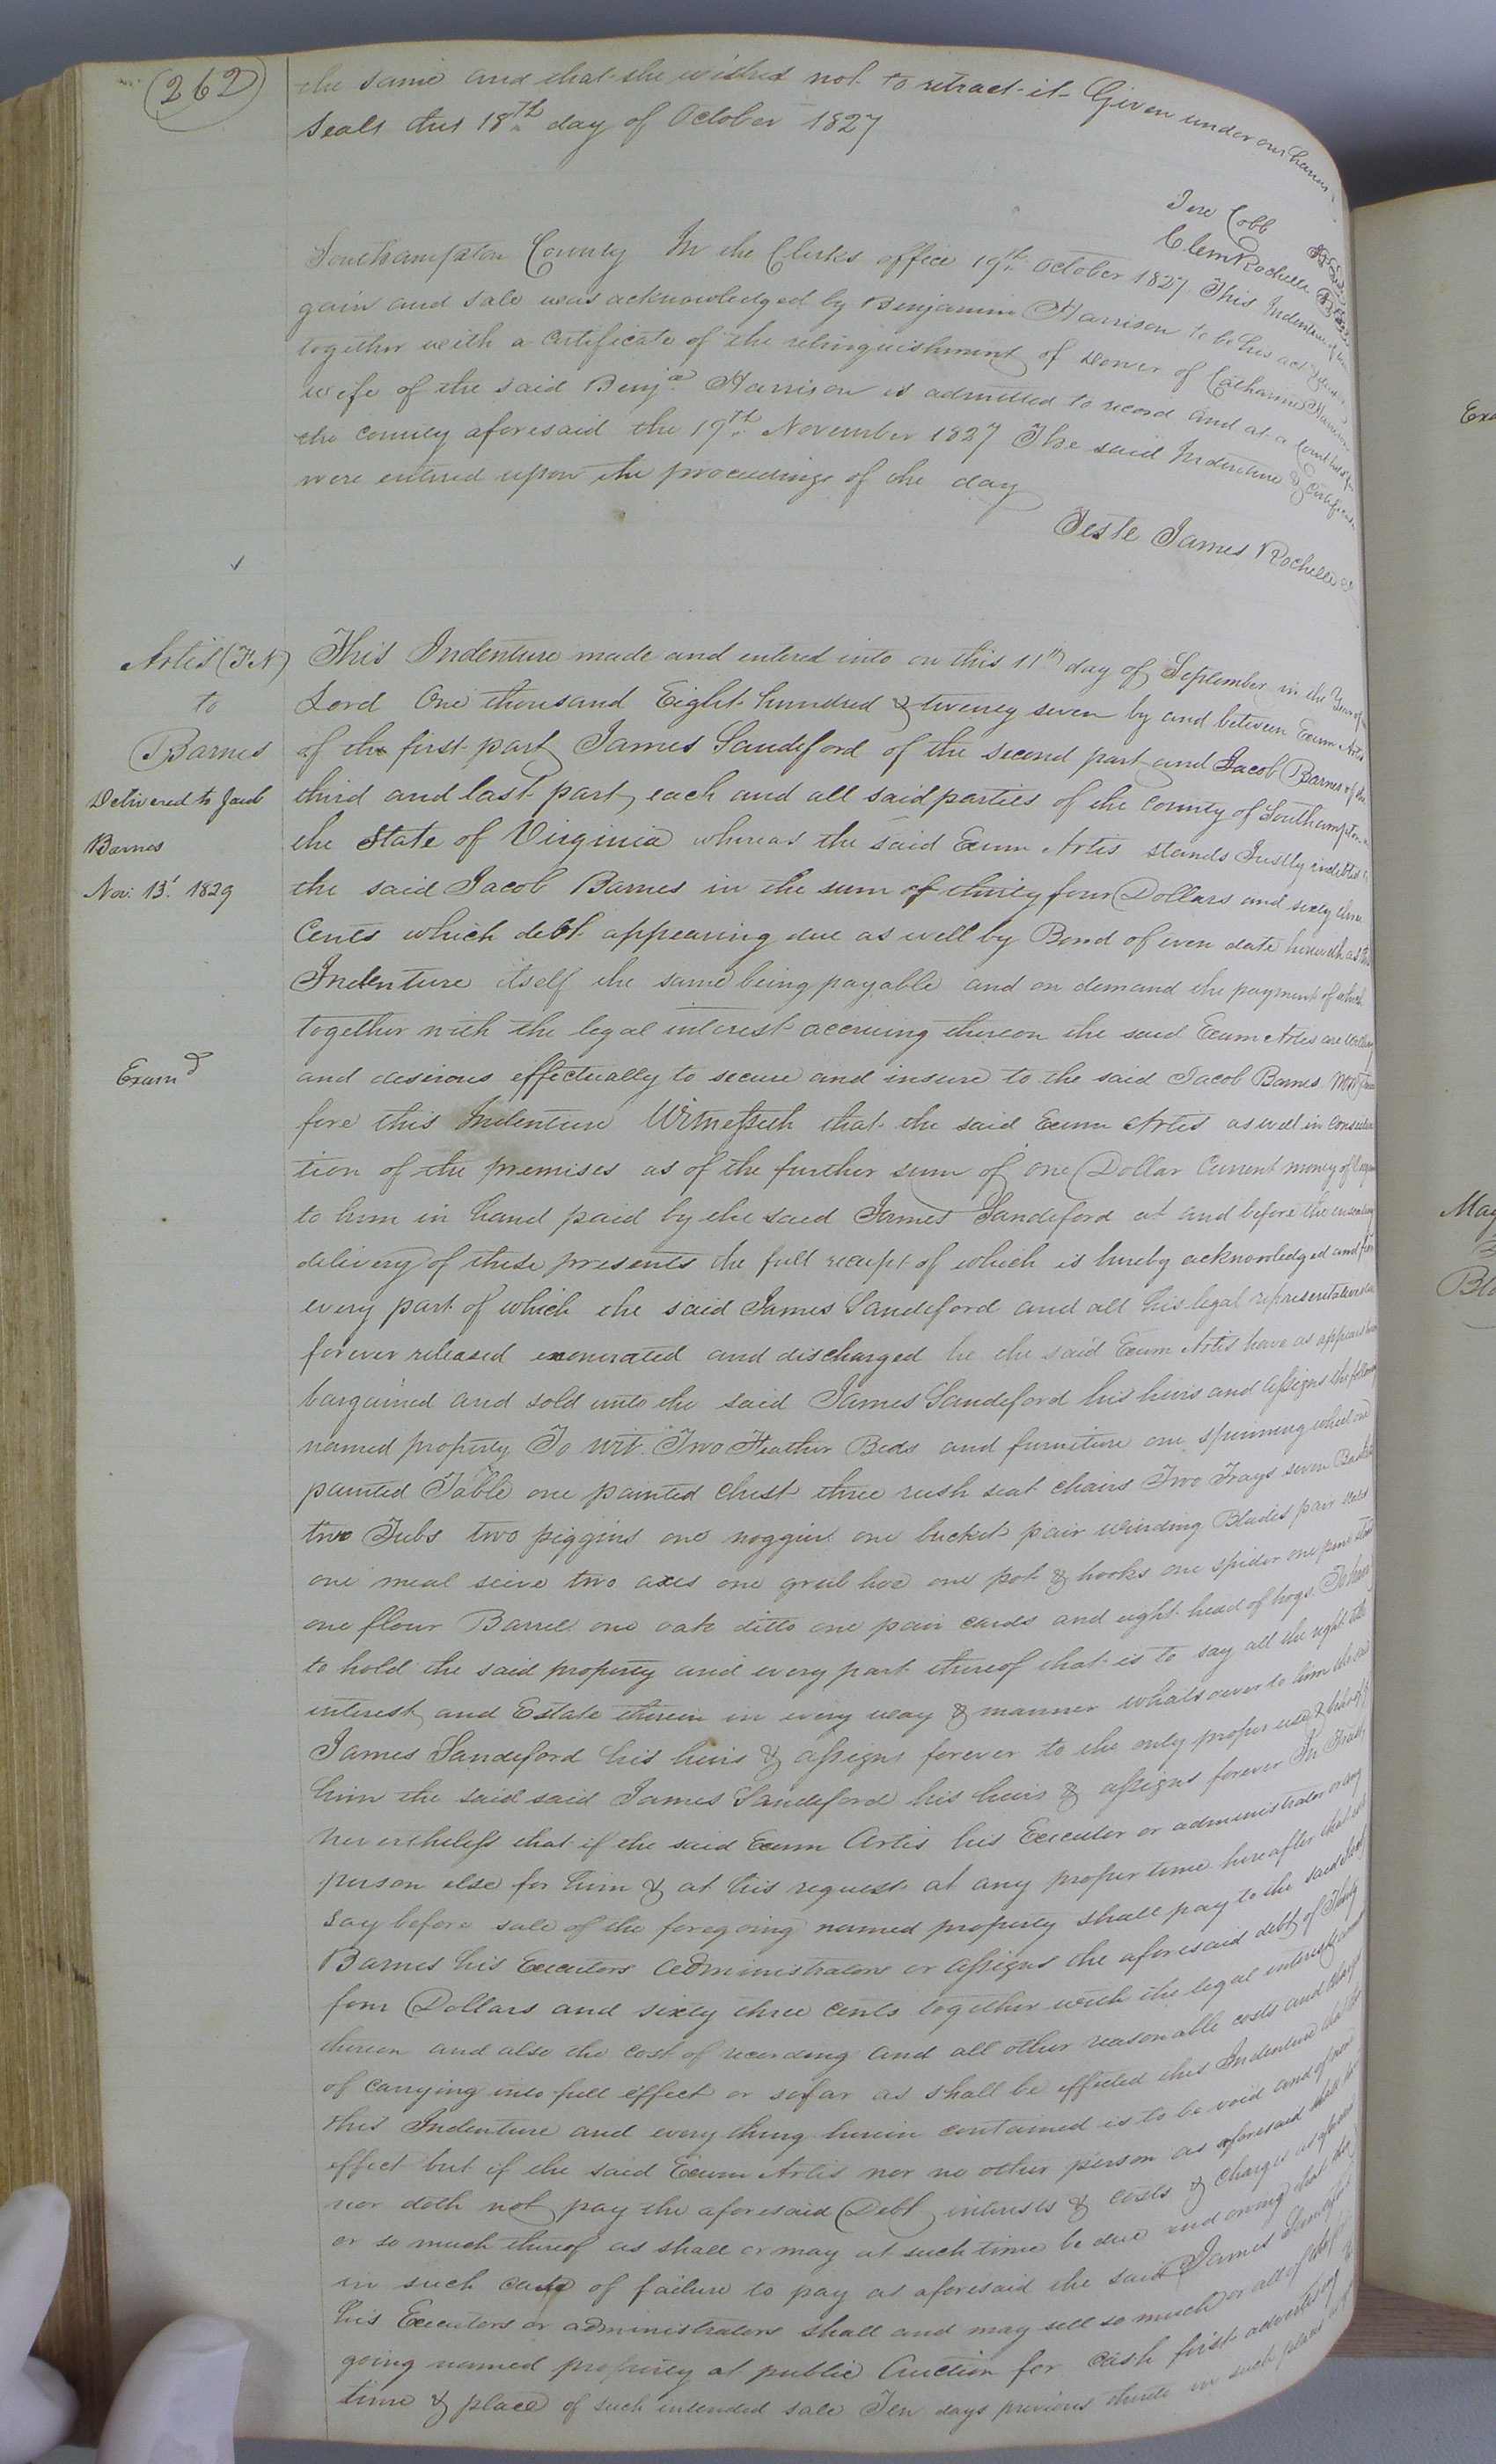 262
the same and that she wished not to retract it Given under our hands
Seals this 18th day of October 1827
Jere Cobb
Clem Rochelle
Southampton County In the Clerks office 19th October 1827 This Indenture of
gain and sale was acknowledged by Benjamin Harrison to be his act
together with a Certificate of the relinquishment of Dower of Catharine Harrison
wife of the said Benja Harrison is admitted to record and at a Court held for
the county aforesaid the 19th November 1827 The said Indenture & Certificate
were entered upon the proceedings of the day
Teste James Rochelle
Artis (F.N)
to
Barnes
Delivered to Jacob
Barnes
Nov. 13. 1829
Examd
This Indenture made and entered into on this 11th day of September in the Year of
Lord One thousand Eight hundred & twenty seven by and between Exum Artis
of the first part James Sandeford of the second part and Jacob Barnes of the
third and last part, each and all said parties of the County of Southampton
the State of Virginia whereas the said Exum Artis stands Justly indebted
the said Jacob Barnes in the sum of thirty four Dollars and sixty three
Cents which debt appearing due as well by Bond of even date herewith as
Indenture itself the same being payable and on demand the payment of which
together with the legal interest accruing thereon the said Exum Artis are willing
and desirous effectually to secure and insure to the said Jacob Barnes Now there
fore this Indenture Witnesseth that the said Exum Artis as well in considera
tion of the premises as of the further sum of one Dollar Current money of
to him in hand paid by the said James Sandeford at and before the ensealing
delivery of these presents the full receipt of which is hereby acknowledged and from
every part of which the said James Sandeford and all his legal representatives
forever released exonerated and discharged he the said Exum Artis have as appears
bargained and sold unto the said James Sandeford his heirs and assigns the following
named property To wit. Two Feather Beds and furniture one spinning wheel one
painted Table one painted chest three rush seat chairs Two Trays seven Baskets
two Tubs two piggins one noggin one bucket pair winding Blades pair
one meal seive two axes one grub hoe one pot & hooks one spider one
one flour Barrel one oak ditto one pair cards and eight head of hogs. To have
to hold the said property and every part thereof that is to say all the right title
interest and Estate therein in every way & manner whatsoever to him the said
James Sandeford his heirs & assigns forever to the only proper use & behoof of
him the said said James Sandeford his heirs & assigns forever In Trust
nevertheless that if the said Exum Artis his Executor or administrator or any
person else for him & at his request at any proper time hereafter that is to
say before sale of the foregoing named property shall pay to the said Jacob
Barnes his Executors administrators or assigns the aforesaid debt of Thirty
four Dollars and sixty three cents together with the legal interest
thereon and also the cost of recording and all other reasonable costs and charges
of carrying into full effect or so far as shall be effected this Indenture
this Indenture and every thing herein contained is to be void and of non
effect but if the said Exum Artis nor no other person as aforesaid shall
nor doth not pay the aforesaid Debt, interests & costs & charges as aforesaid
or so much thereof as shall or may at such time be due and owing that
in such case of failure to pay as aforesaid the said James Sandeford
his Executors or administrators shall and may sell so much or all of the
going named property at public Auction for cash first advertising
time & place of such intended sale Ten days previous thereto in such places